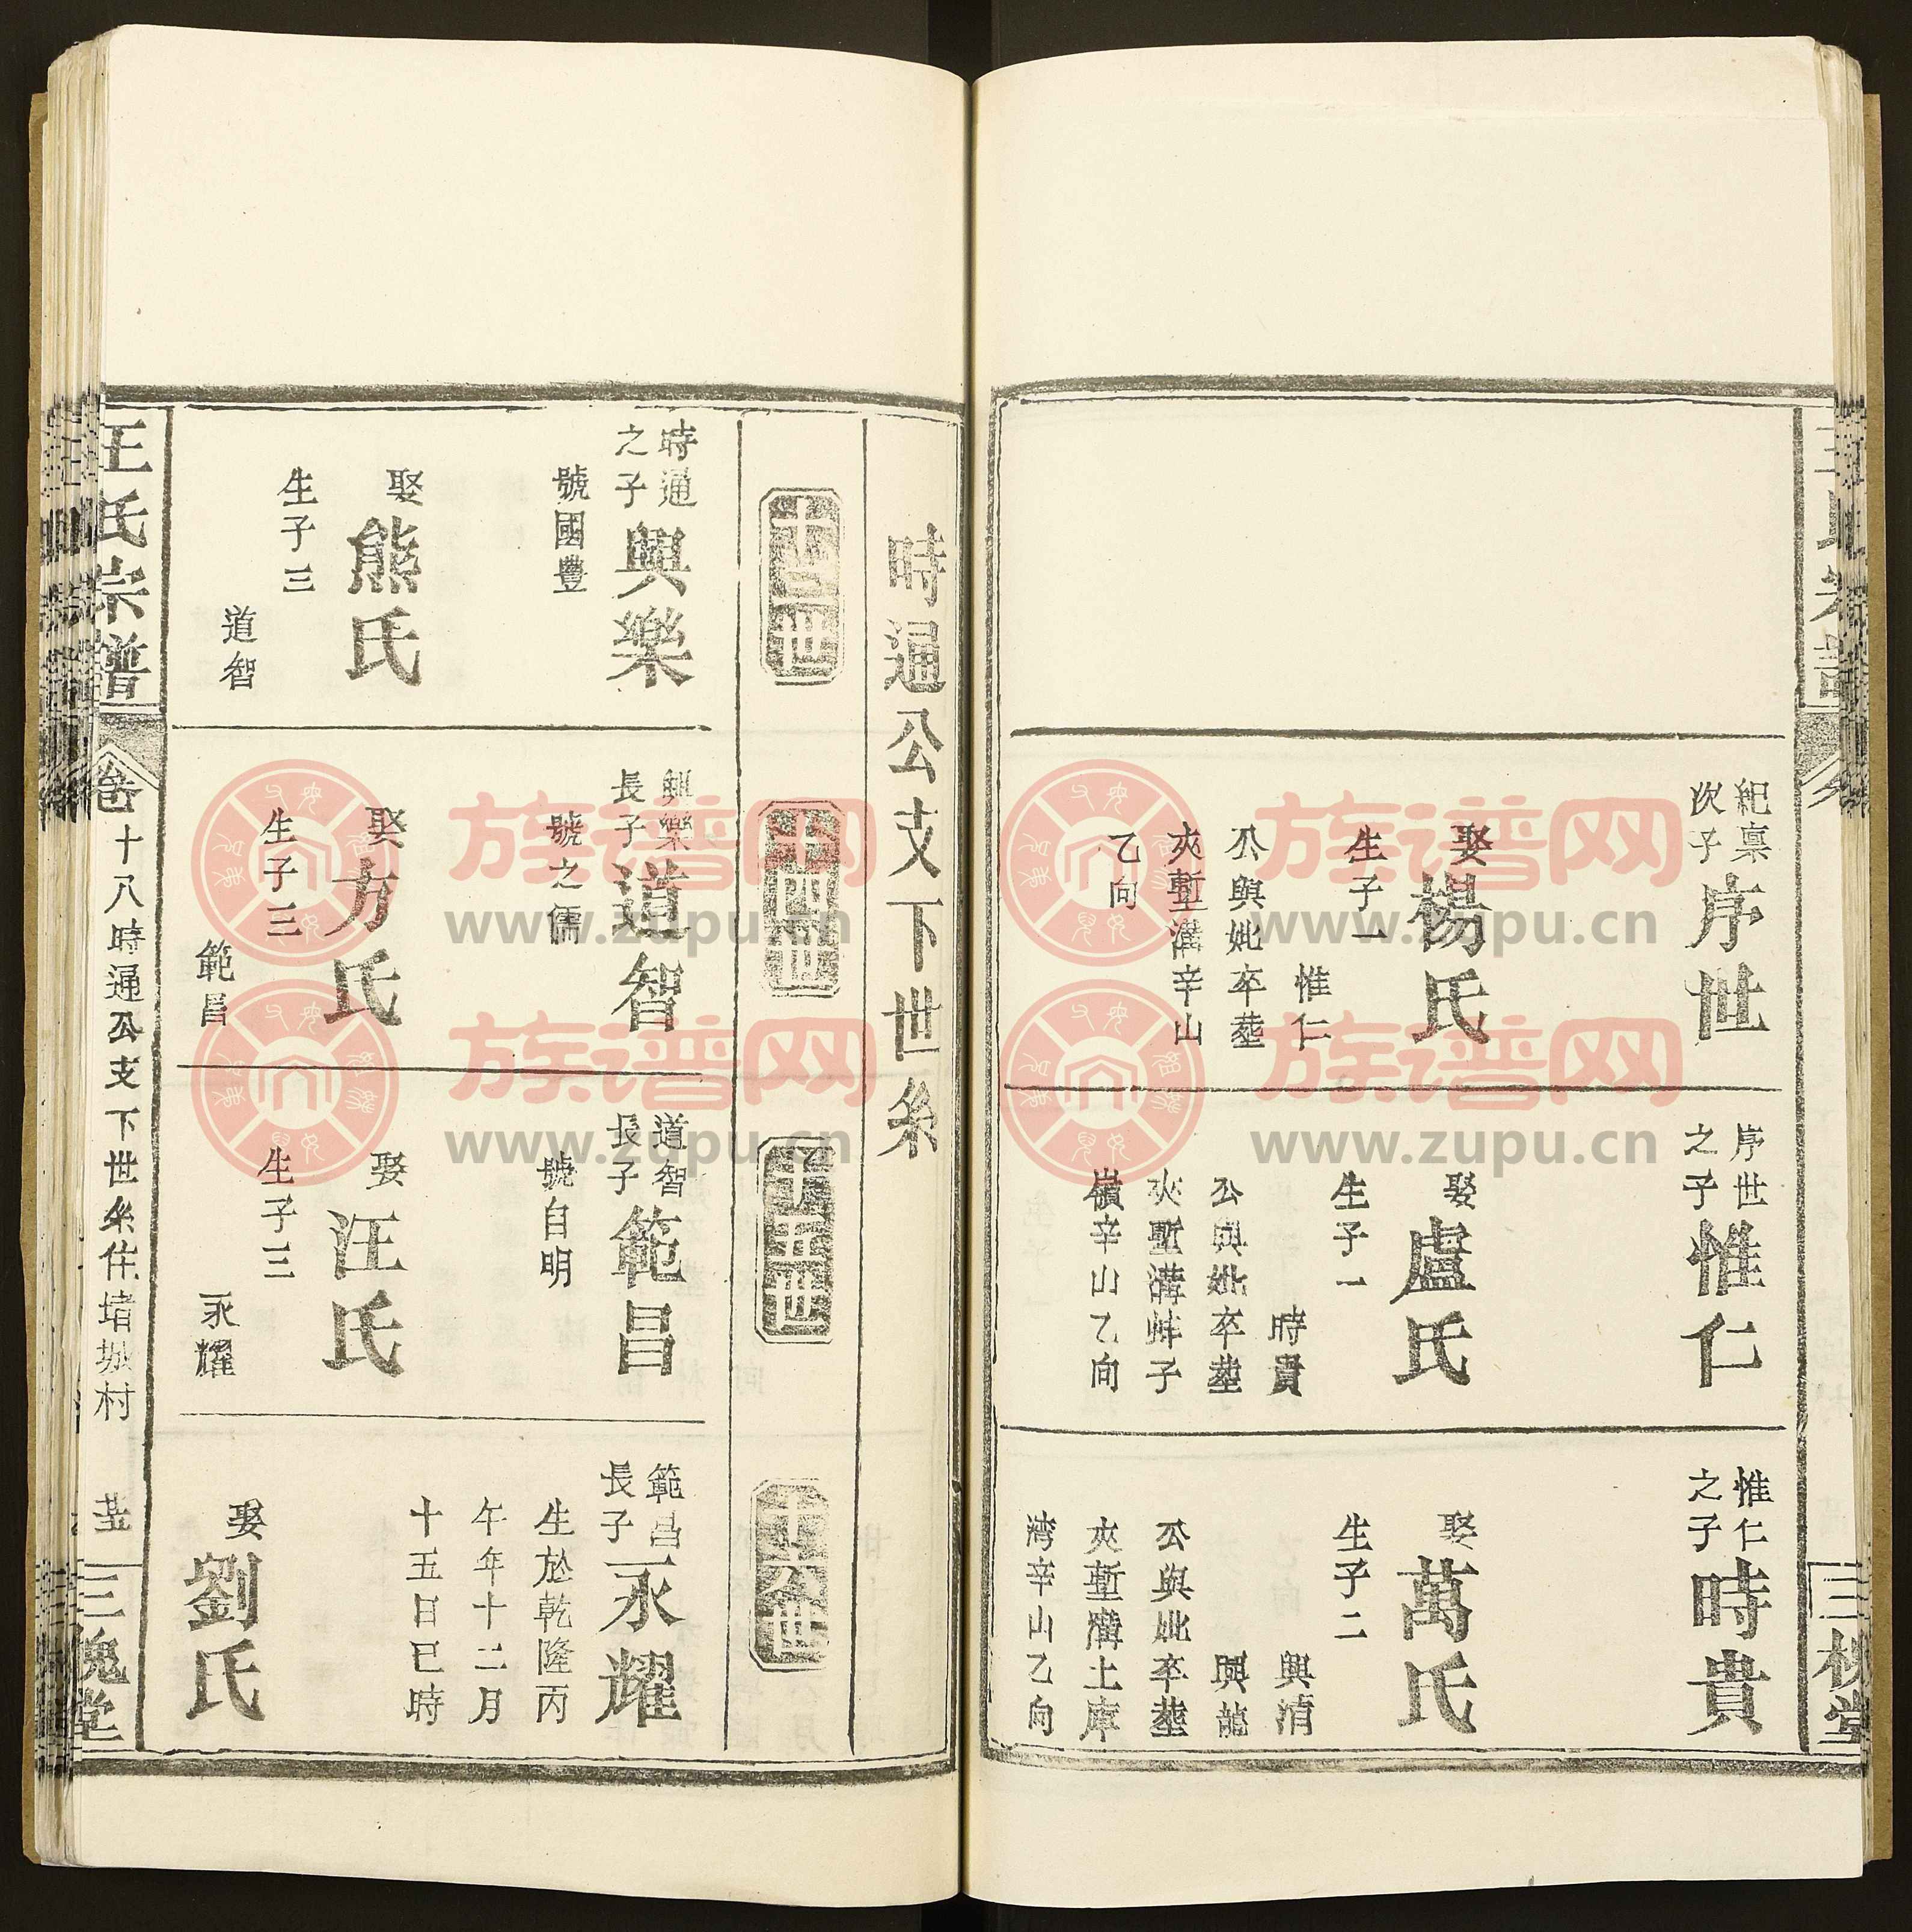 紀稟
次子
序世
娶楊氏
生子一
惟仁
公與妣卒塟
夾塹溝辛山
乙向
序世
之子
惟仁
娶盧氏
生子一
時貴
公與妣卒塟
夾塹溝蚌子
嶺辛山乙向
惟仁
之子
時貴
娶萬氏
生子二
興清
興龍
公與妣卒塟
夾塹溝土庫
湾辛山乙向
三槐堂
時通公支下世系
十三世
十四世
十五世
十六世
時通
之子
興樂
號國豐
娶熊氏
生子三
道智
興樂
長子
道智
號之儒
娶方氏
生子三
範昌
道智
長子
範昌
號自明
娶汪氏
生子三
永耀
範昌
長子
永耀
生於乾隆丙
午年十二月
十五日巳時
娶劉氏
王氏宗譜
卷十八時通公支下世系住堵城村
三槐堂
族谱网
www.zupu.cn
族谱网
www.zupu.cn
族谱网
www.zupu.cn
族谱网
www.zupu.cn